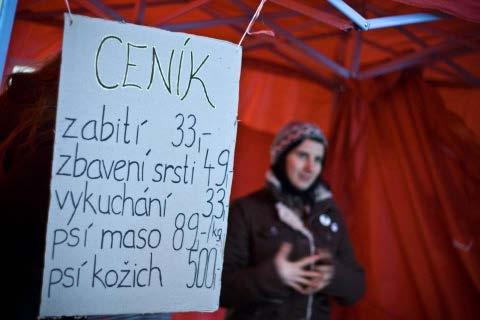 CENÍK
zabití 33,-
zbavení srsti 49,-
vykuchání 33,-
psí maso 89,-/kg
psí kožich 500,-